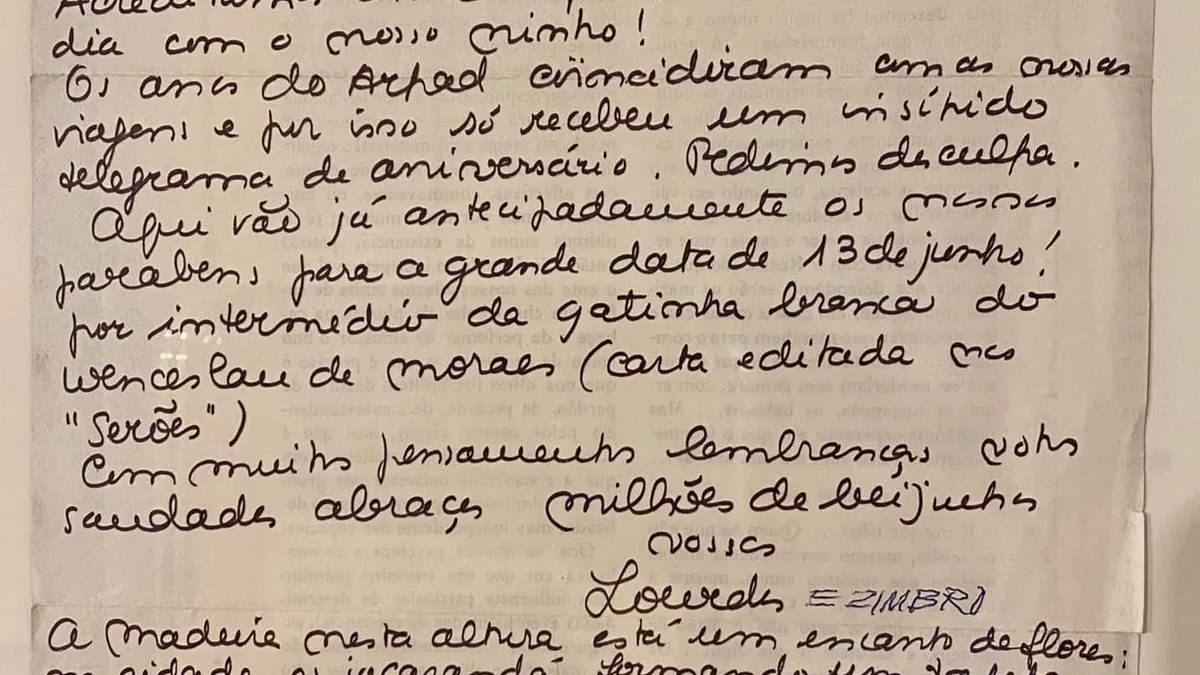 dia com o nosso ninho!
Os anos do Arpad coincidiram com as nossas
viagens e por isso só recebeu um insípido
telegrama de aniversário. Pedimos desculpa.
Aqui vão já antecipadamente os nossos
parabens para a grande data de 13 de junho!
por intermédio da gatinha branca do
Wenceslau de Moraes (carta editada nos
"Serões")
Com muitos pensamentos lembranças votos
saudades abraços milhões de beijinhos
vossos
Lourdes E ZIMBRO
A Madeira nesta altura está um encanto de flores:
na cidade os jacarandá formando um